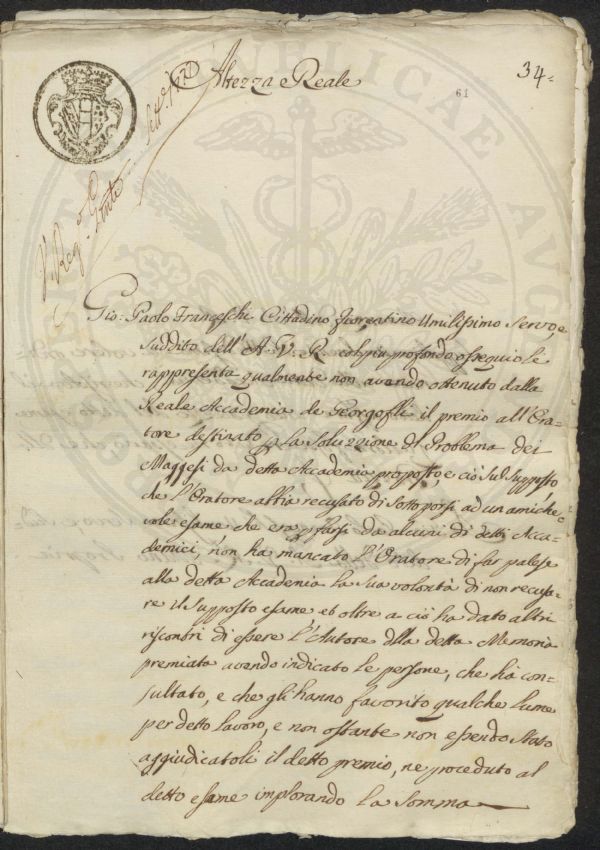 34.
Altezza Reale
61
Gio: Paolo Franceschi Cittadino fiorentino Umilissimo Servo, e
Suddito dell' A. V. R. col più profondo ossequio le
rappresenta qualmente non avendo ottenuto dalla
Reale Accademia de Georgofli il premio all' Ora-
tore destinato p la Soluzzione dl Problema dei
Maggesi da detta Accademia proposto, e ciò sul supposto
che l'Oratore abbia recusato di sottoporsi ad un amiche-
vole esame che era p farsi da alcuni di detti Acca-
demici, non ha mancato l'Oratore di far palese
alla detta Accademia la sua volontà di non recusa-
re il supposto esame et oltre a ciò ha dato altri
riscontri di essere l'Autore dlla detta Memoria
premiata avendo indicato le persone, che ha con-
sultato, e che gli hanno favorito qualche lume
per detto lavoro, e non ostante non essendo stato
aggiudicatoli il detto premio, ne proceduto al
detto esame implorando la somma